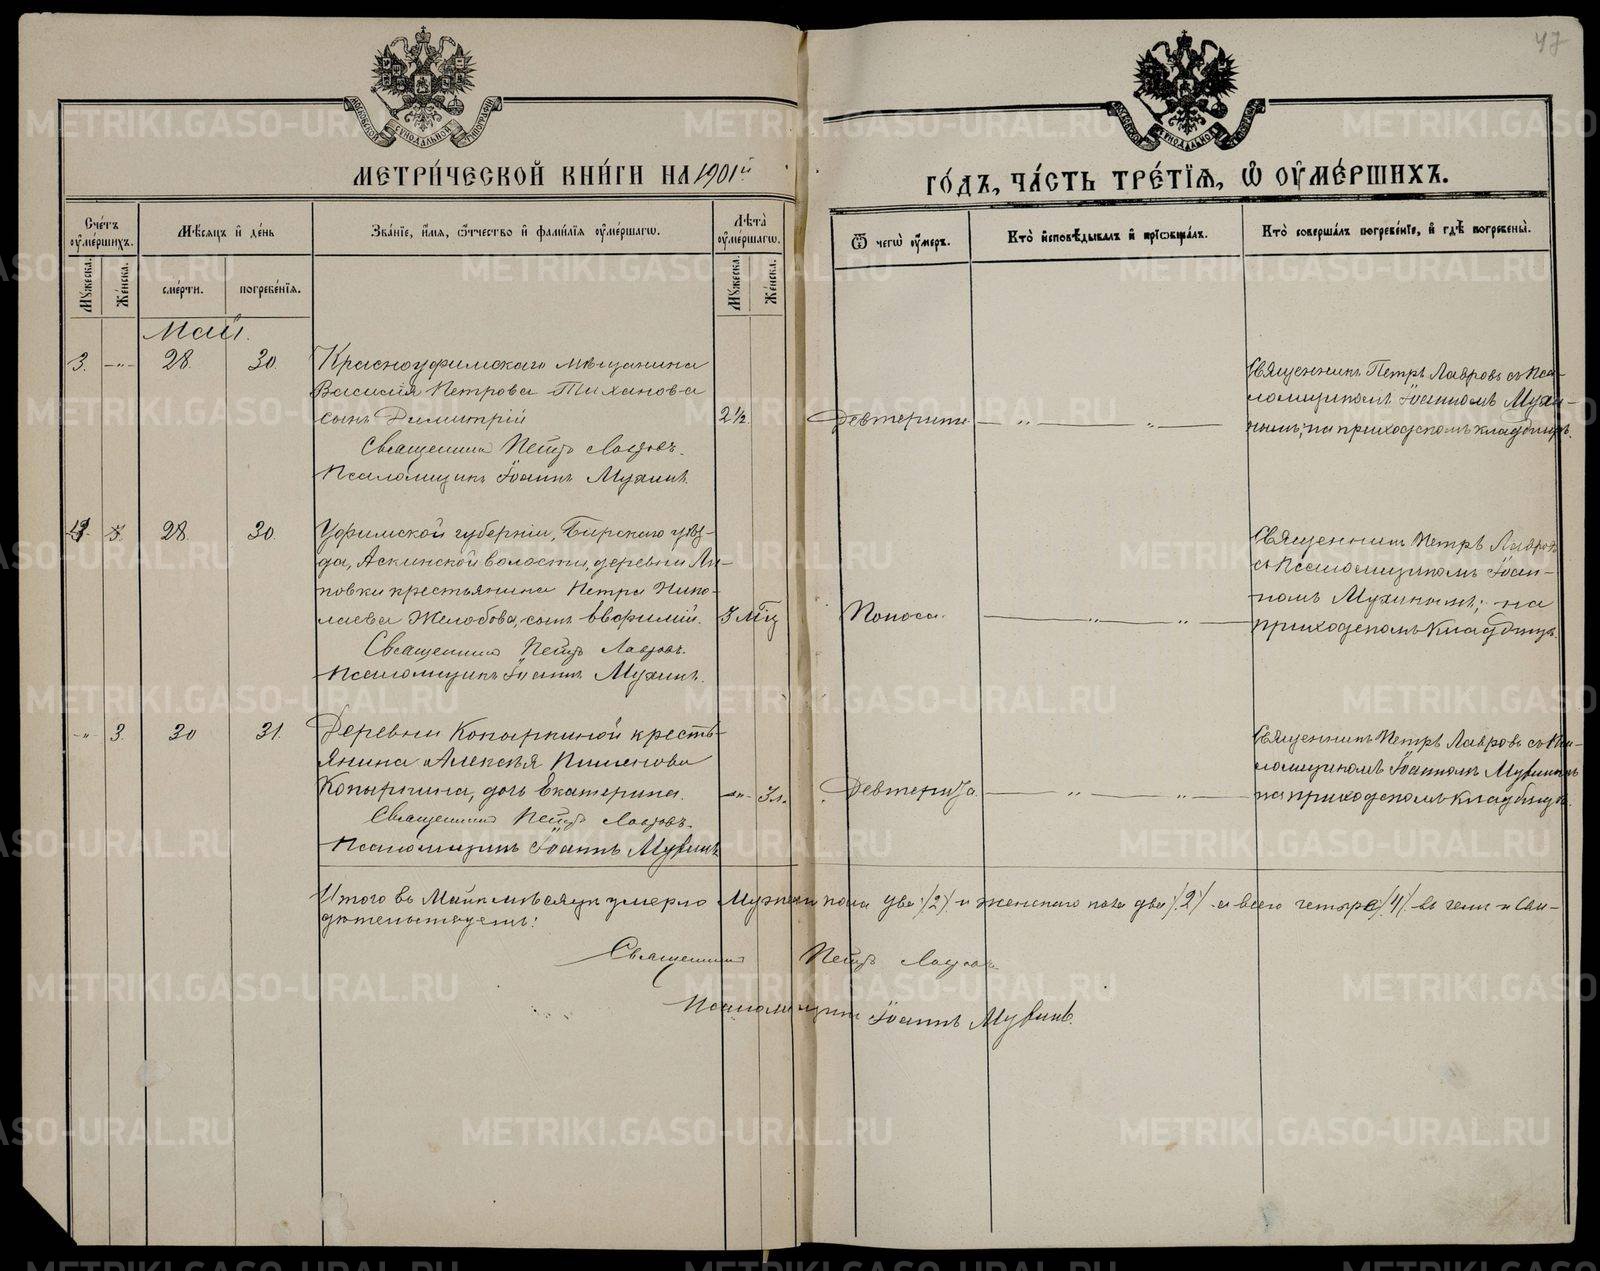 47
МЕТРИ́ЧЕСКОЙ КНИ́ГИ НА 1901й
ГО́ДЪ, ЧА́СТЬ ТРЕ́ТІЯ, Ѡ ОУМЕ́РШИХЪ.
Сче́тъ оу҆ме́ршихъ.
Мѣсяцъ и де́нь
Зва́ніе, и́мя, ѻ҆́тчество и фами́лія оу҆ме́ршагѡ.
Лѣта̀ оу҆ме́ршагѡ.
Ѿ чегѡ̀ оу҆́меръ.
Кто̀ и҆сповѣ́дывалъ и прїѡбща́лъ.
Кто̀ соверша́лъ погребе́ніе, и гдѣ̀ погребены̀.
Му́жеска.
Же́нска.
сме́рти.
погребе́нія.
Му́жеска.
Же́нска.
Май.
3. -"- 28. 30. Красноуфимскаго мѣщанина
Василія Петрова Тиханова
сынъ Димитрій 2½
Священникъ Петръ Лавровъ.
Псаломщикъ Іоаннъ Мухинъ.
—"—"—
Священникъ Петръ Лавровъ съ Пса-
ломщикомъ Іоанномъ Мухи-
нымъ; на приходскомъ кладбищѣ.
28 30 Уфимской губерніи, Бирскаго уѣз-
да, Аскинской волости, деревни Ли-
повки крестьянина Петра Нико-
лаева Желобова, сынъ 3 Мѣц
Священникъ Петръ Лавровъ.
Псаломщикъ Іоаннъ Мухинъ.
Поноса. —"—"—
Священникъ Петръ Лавровъ
съ Псаломщикомъ Іоан-
номъ Мухинымъ; на
приходскомъ кладбищѣ.
-"- 3. 30 31. Деревни Копыркиной кресть-
янина Алексѣя Пименова
Копыркина, дочь Екатерина. -"- 3 л.
Священникъ Петръ Лавровъ.
Псаломщикъ Іоаннъ Мухинъ
—"—"—
Священникъ Петръ Лавровъ съ Пса-
ломщикомъ Іоанномъ Мухинымъ
на приходскомъ кладбищѣ.
Итого въ Маѣ мѣсяцѣ умерло Мужеска пола два /2/ и женскаго пола два /2/ а всего четыре /4/ въ чемъ и сви-
дѣтельствуемъ:
Священникъ Петръ Лавровъ
Псаломщикъ Іоаннъ Мухинъ.
METRIKI.GASO-URAL.RU